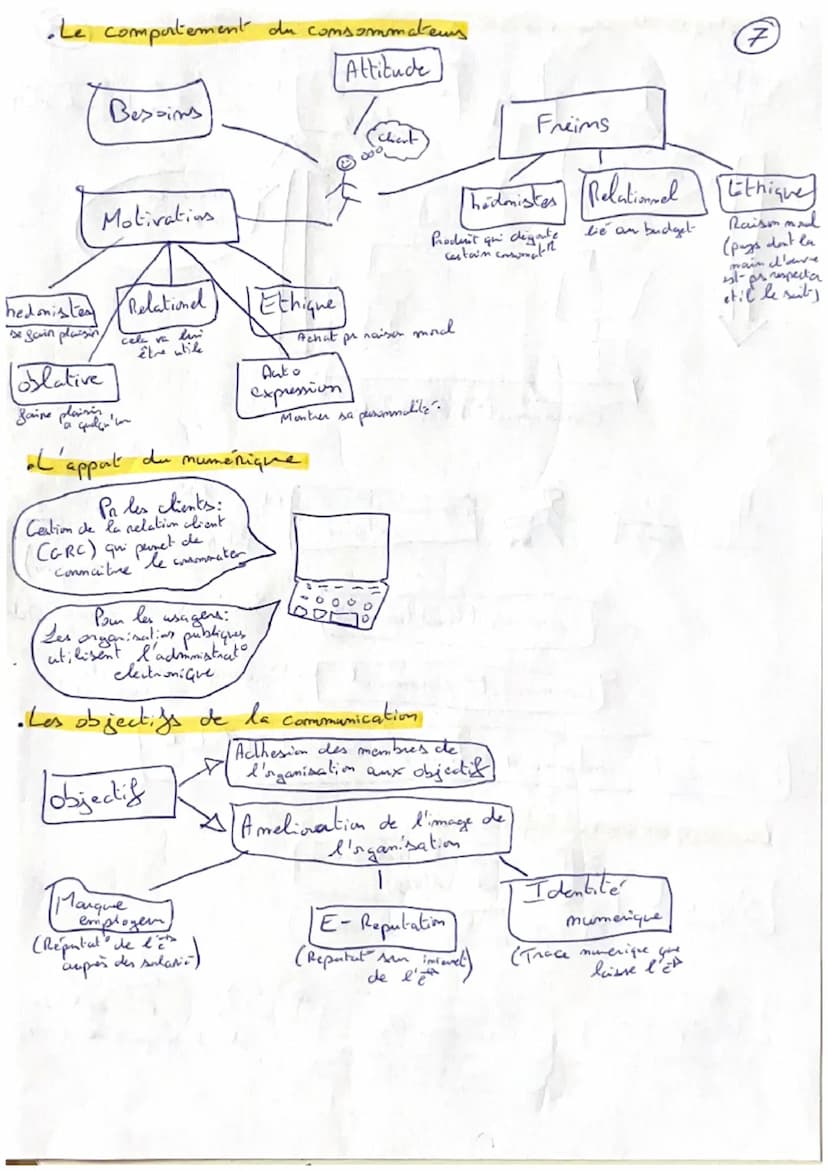 .Le comportement du consommateurs
7
Attitude
Besoins
client
Freins
Motivation
hédonistes
Relationnel
Ethique
Produit qui dégoute
certain consomat°
lié au budget
Raison moral
(pays dont la
main d'œuvre
est ps respecter
et il le suit)
hedonistes
Relationel
Ethique
se faire plaisir
cela va lui
être utile
Achat pr raison moral
Oblative
Auto
expression
faire plaisir
a quelqu'un
Montrer sa personnalité.
.L'apport du numérique
Pr les clients:
Gestion de la relation client
(GRC) qui permet de
connaitre le consommater
Pour les usagers:
Les organisation publiques
utilisent l'administrat°
electronique
.Les objectifs de la communication
Adhesion des membres de
l'organisation aux objectif
Objectif
Amelioration de l'image de
l'organisation
Marque
employeur
(Réputat° de l'E
auprès des salarié)
E-Reputation
(Reputat° sur internet
de l'E
Identité
numerique
(Trace numerique que
laisse l'E